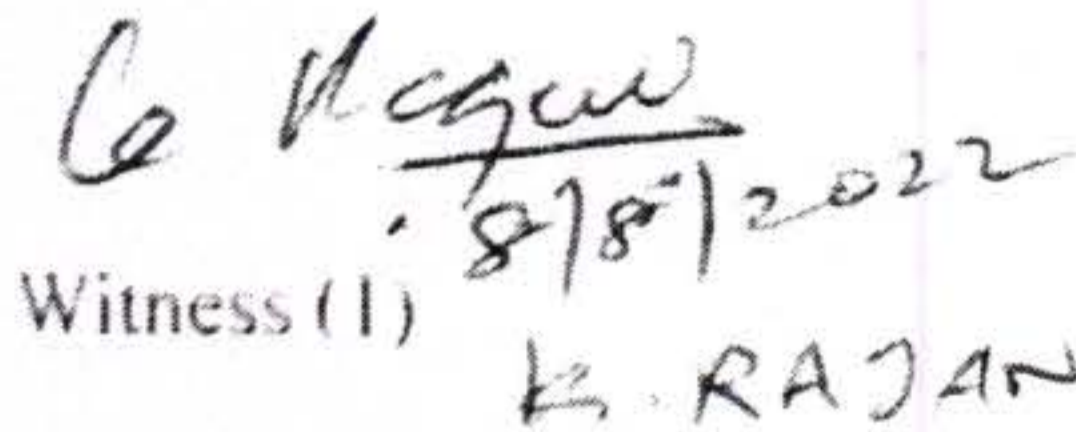 8/8/2022
Witness (1)
K. RAJAN